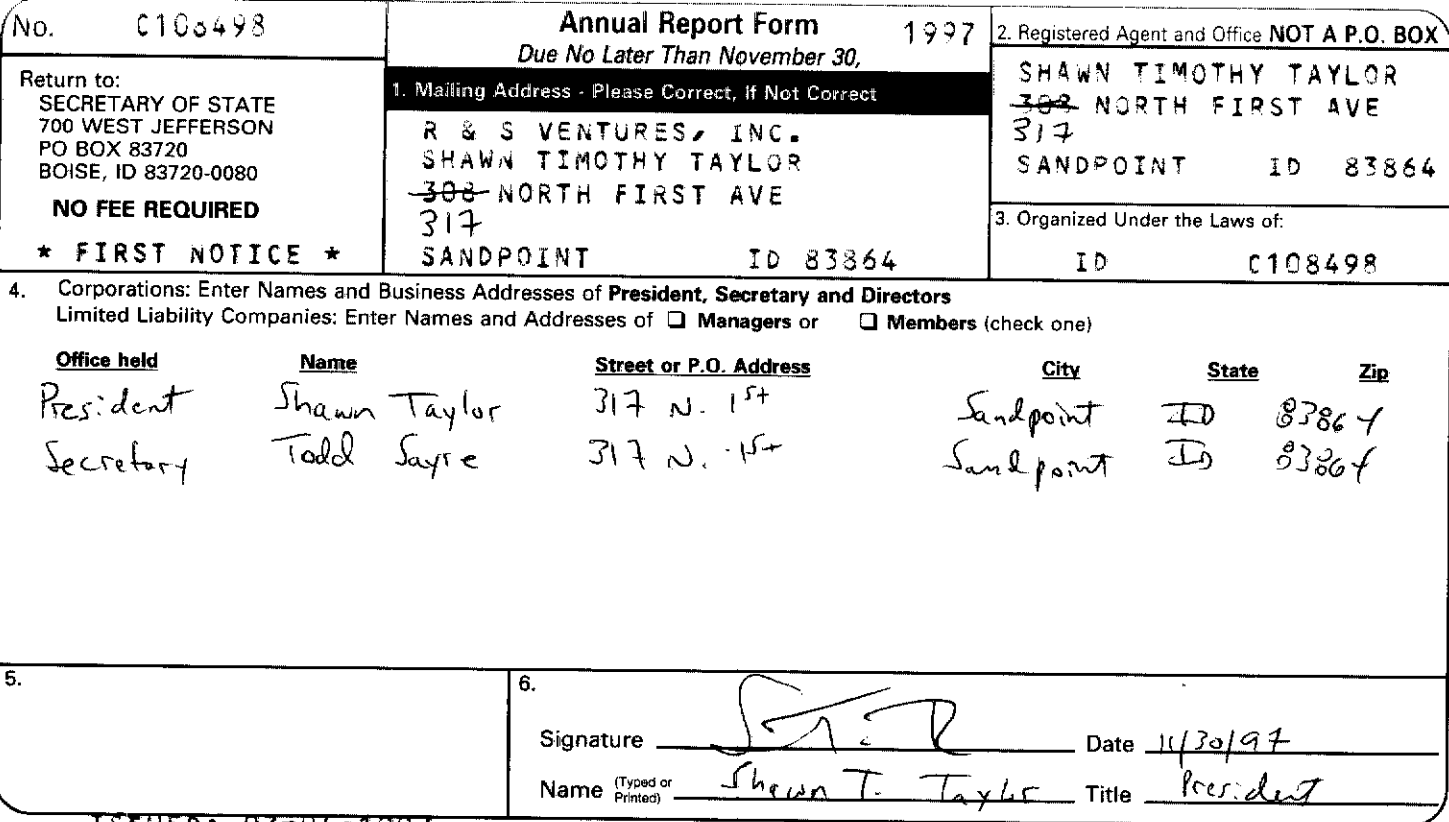 No. C108498
Annual Report Form 1997
Due No Later Than November 30,
Return to:
SECRETARY OF STATE
700 WEST JEFFERSON
PO BOX 83720
BOISE, ID 83720-0080
NO FEE REQUIRED
* FIRST NOTICE *
1. Mailing Address - Please Correct, If Not Correct
R & S VENTURES, INC.
SHAWN TIMOTHY TAYLOR
308 NORTH FIRST AVE
317
SANDPOINT ID 83864
2. Registered Agent and Office NOT A P.O. BOX
SHAWN TIMOTHY TAYLOR
308 NORTH FIRST AVE
317
SANDPOINT ID 83864
3. Organized Under the Laws of:
ID C108498
4. Corporations: Enter Names and Business Addresses of President, Secretary and Directors
Limited Liability Companies: Enter Names and Addresses of ❑ Managers or ❑ Members (check one)
Office held Name Street or P.O. Address City State Zip
President Shawn Taylor 317 N. 1st Sandpoint ID 83864
Secretary Todd Sayre 317 N. 1st Sandpoint ID 83864
5.
6.
Signature Date 11/30/97
Name (Typed or Printed) Shawn T. Taylor Title President